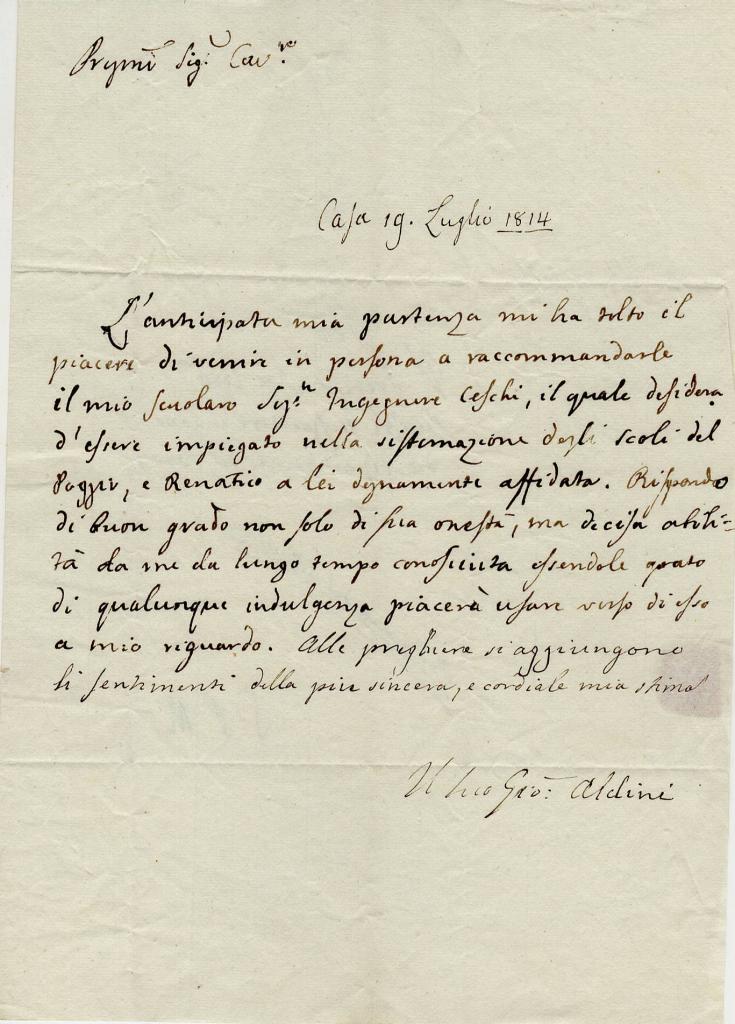 Prgmo Sigr Cavre
Casa 19. Luglio 1814
L'anticipata mia partenza mi ha tolto il
piacere di venire in persona a raccommandarle
il mio scuolaro Sigr Ingegnere Ceschi, il quale desidera
d'essere impiegato nella sistemazione degli scoli del
Poggio, e Renatico a lei degnamente affidata. Rispondo
di buon grado non solo di sua onestà, ma decisa abili=
tà da me da lungo tempo conosciuta essendole grato
di qualunque indulgenza piacerà usare verso di esso
a mio riguardo. Alle preghiere si aggiungono
li sentimenti della piu sincera, e cordiale mia stima
Il suo Gio: Aldini